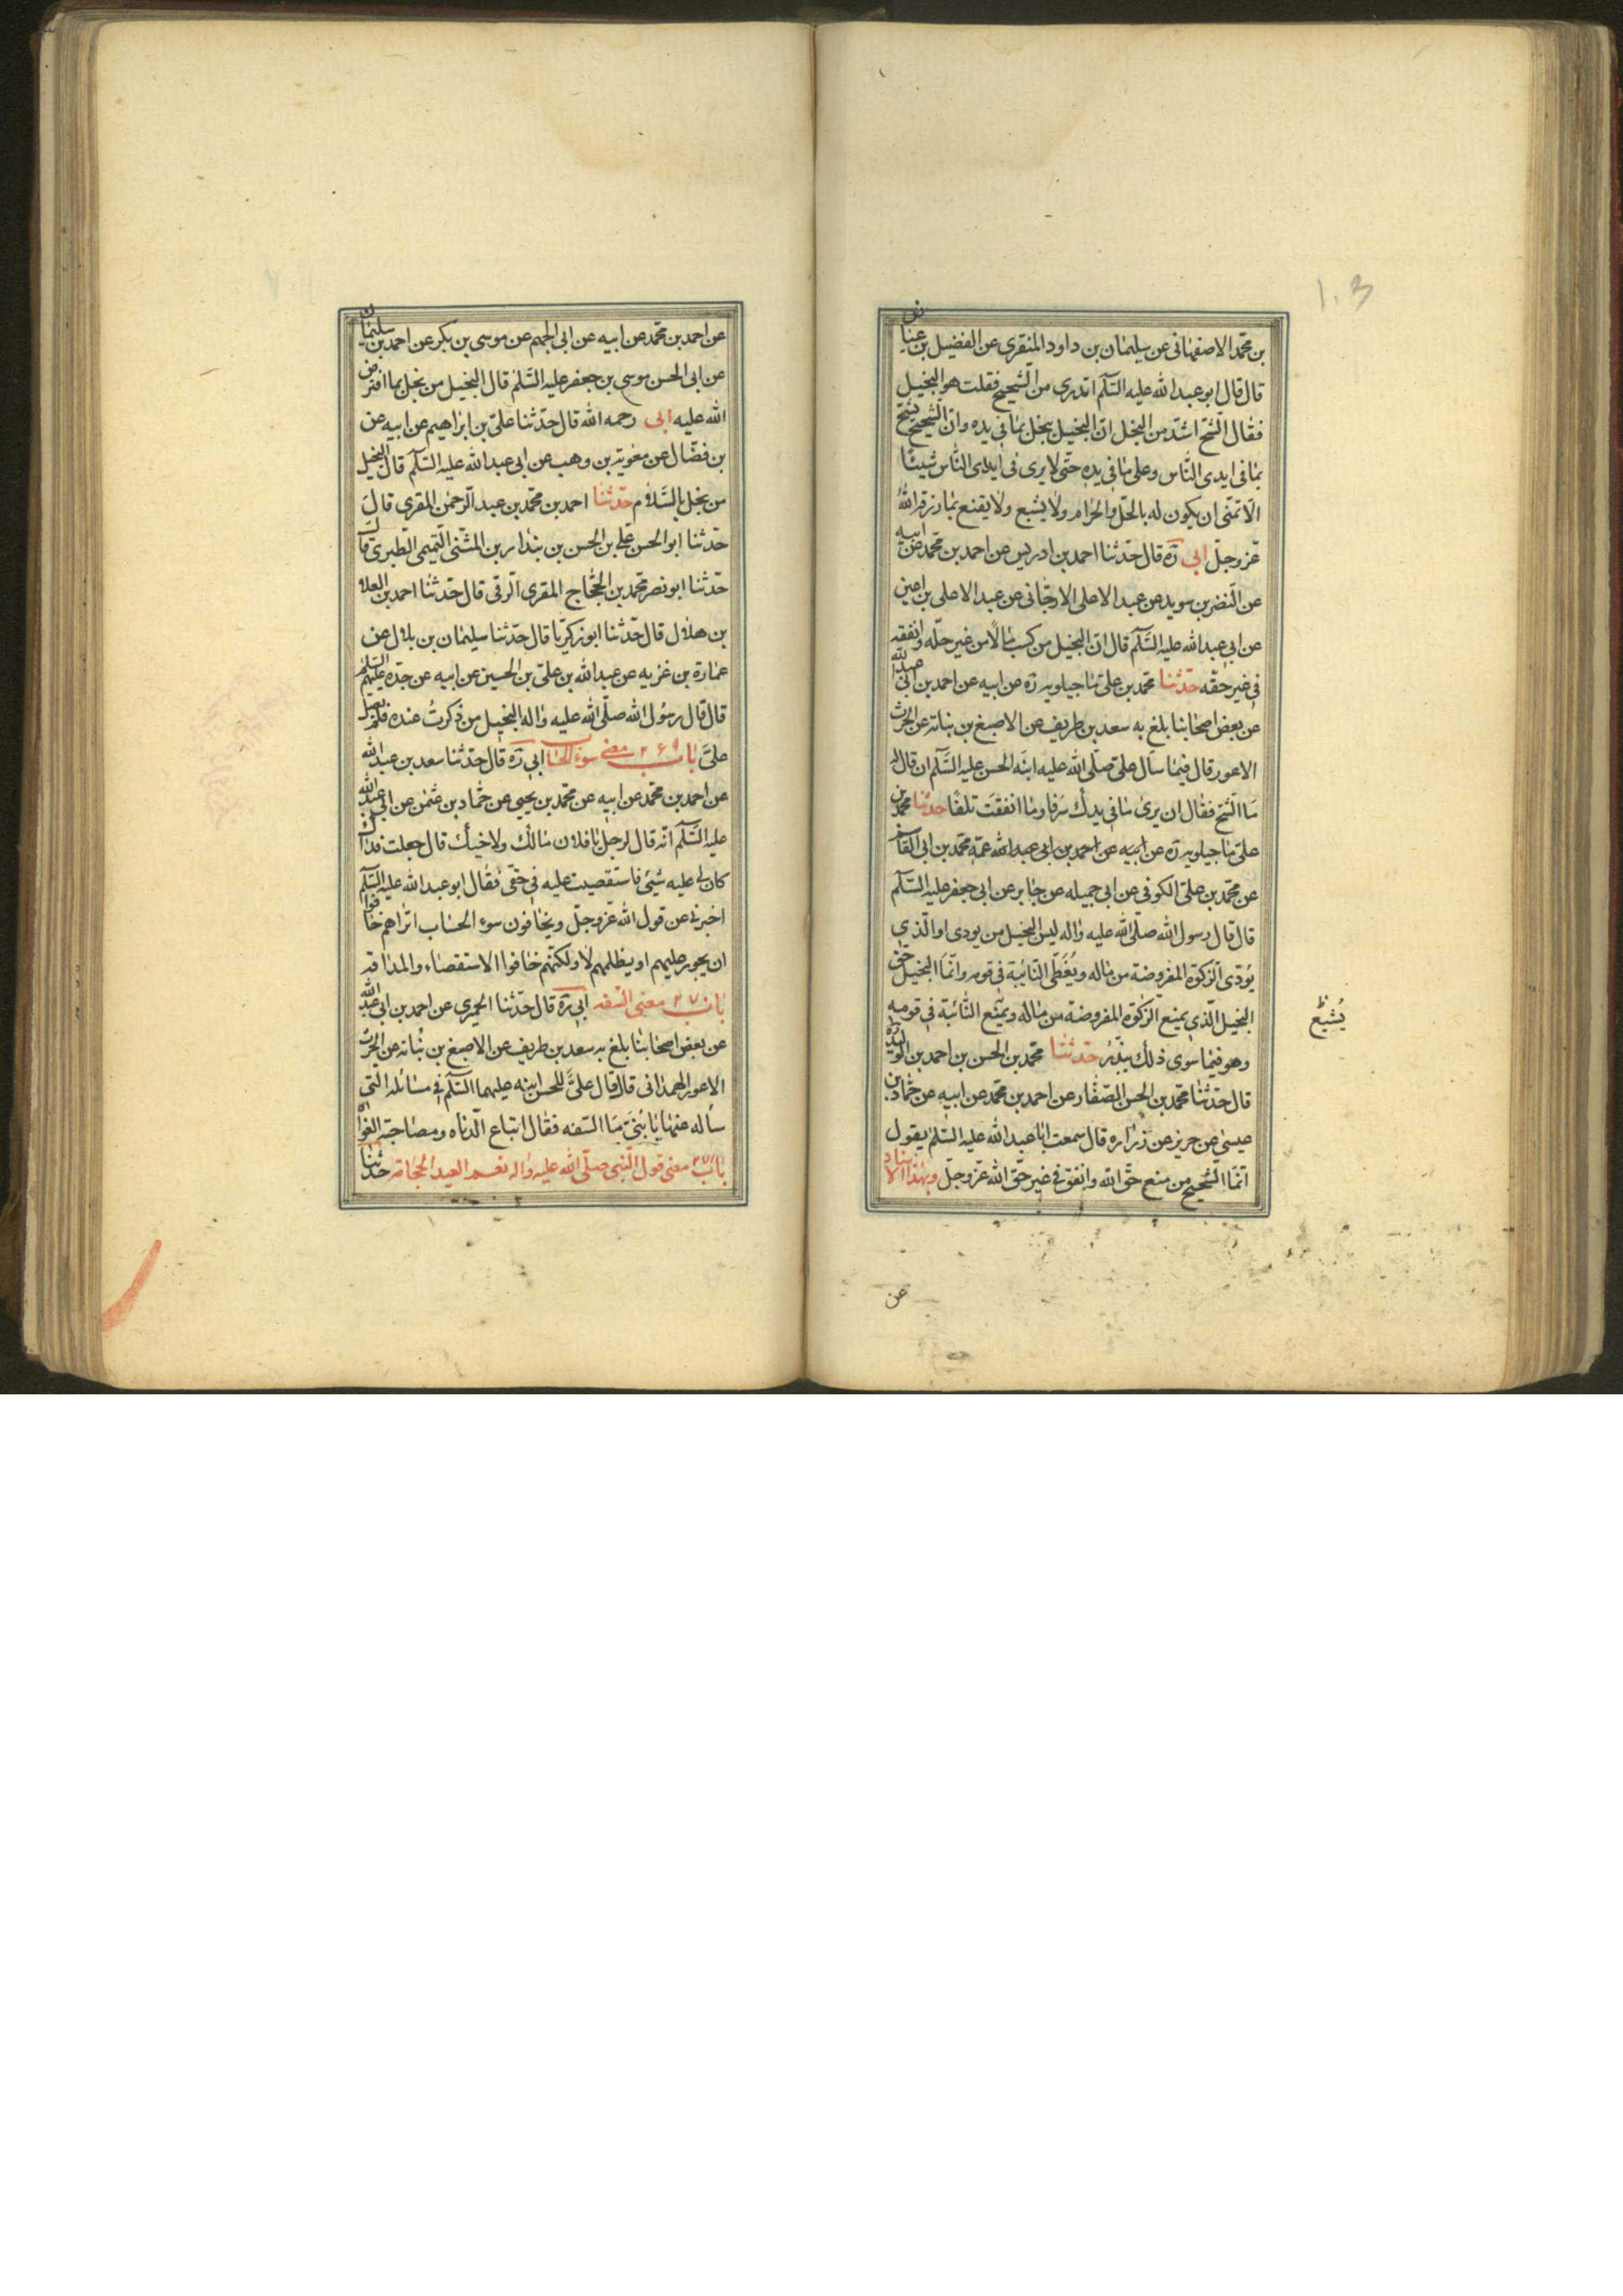 بن محمد الاصفهانى عن سليمان بن داود المنقرى عن الفضيل بن عياض
قال قال ابو عبد الله عليه السّلم اتدرى من الشّحيح فقلت هو البخيل
فقال الشّح اشدّ من البخل انّ البخيل يبخل بما فى يده وانّ الشّحيح يشحّ
بما فى ايدى النّاس وعلى ما فى يده حتّى لا يرى فى ايدى النّاس شيئًا
الّا تمنّى ان يكون له بالحلّ والحرام ولا يشبع ولا يقنع بما رزقه اللهُ
عزّ وجلّ ابى ره قال حدّثنا احمد بن ادريس عن احمد بن محمّد عن ابيه
عن النّضر بن سويد عن عبد الاعلى الارجّانى عن عبد الاعلى بن اعين
عن ابى عبد الله عليه السّلم قال انّ البخيل من كسب مالًا من غير حلّه وانفقه
فى غير حقّه حدّثنا محمّد بن علىّ ماجيلويه ره عن ابيه عن احمد بن ابى عبد الله
عن بعض اصحابنا بلغ به سعد بن طريف عن الاصبغ بن نباته عن الحرث
الاعور قال فيما سال علىّ صلّى الله عليه ابنَه الحسن عليه السّلم ان قال له
مَا الشّح فقال ان يرى ما فى يدك سَرَفا وما انفقتَ تلفًا حدثنا محمّد بن
علىّ ماجيلويه ره عن ابيه عن احمد بن ابى عبد الله عمّه محمّد بن ابى القاسم
عن محمّد بن علىّ الكوفى عن ابى جميله عن جابر عن ابى جعفر عليه السّلم
قال قال رسول الله صلّى الله عليه واله ليس البخيل من يودى او الّذى
يُؤدّى الزّكوة المفروضة من ماله ويُعْطى النّايبة فى قومه وانّما البخيل حق
البخيل الّذى يمنع الزّكوة المفروضة من ماله ويمنع النّائبة فى قومه
وهو فيما سوى ذلك يبذّر حدّثنا محمّد بن الحسن بن احمد بن الوليد ره
قال حدّثنا محمّد بن الحسن الصّفار عن احمد بن محمّد عن ابيه عن حمّاد بن
عيسى عن حريز عن زراره قال سمعت ابا عبد الله عليه السّلم يقول
انّما الشّحيح من منع حقّ الله وانفق فى غير حقّ الله عزّ وجلّ وبهذا الاسناد
عن
عن احمد بن محمّد عن ابيه عن ابى الجهم عن موسى بن بكر عن احمد بن سليمان
عن ابى الحسن موسى بن جعفر عليه السّلم قال البخيل من بخل بما افترض
الله عليه ابى رحمه الله قال حدّثنا علىّ بن ابراهيم عن ابيه عن
بن فضّال عن معوية بن وهب عن ابى عبد الله عليه السّلم قال البخيل
من بخل بالسّلام حدّثنا احمد بن محمّد بن عبد الرّحمن المقرى قالَ
حدّثنا ابو الحسن على بن الحسن بن بندار بن المثنّى التّميمى الطّبرى قال
حدّثنا ابو نصر محمّد بن الحجّاج المقرى الرّقى قال حدّثنا احمد بن العلا
بن هلال قال حدّثنا ابو زكريّا قال حدّثنا سليمان بن بلال عن
عمارة بن غزيه عن عبد الله بن علىّ بن الحسين عن ابيه عن جدّه عليهم السّلم
قال قال رسُول الله صلّى الله عليه واله البخيل من ذُكرتُ عنده فلم يصلّ
علىَّ باب ٢٦٩ معنى سوء الحساب ابى ره قال حدّثنا سعد بن عبد الله
عن احمد بن محمّد عن ابيه عن محمّد بن يحيى عن حمّاد بن عثمن عن ابى عبد الله
عليه السّلم انّه قال لرجل يا فلان مالك ولاخيك قال جعلت فداك
كان لى عليه شئ فاستقصيت عليه فى حقى فقال ابو عبد الله عليه السّلم
اخبرنى عن قول الله عزّ وجلّ ويخافون سوء الحساب اتراهم خافوا
ان يجور عليهم او يظلمهم لا ولكنّهم خافوا الاستقصاء والمداقه
باب ٢٧٠ معنى السّفه ابى ره قال حدّثنا الحميرى عن احمد بن ابى عبد الله
عن بعض اصحابنا بلغ به سعد بن طريف عن الاصبغ بن نُباته عن الحرث
الاعور الهمدانى قال قال علىّ للحسن ابنه عليهما السّلم فى مسائله الّتى
سأله عنها يا بُنىَّ مَا السّفه فقال اتباع الدّناه ومصاحبة الغواة
باب ٢٧١ معنى قول النّبى صلّى الله عليه واله نعم العيد الحجامه حدّثنا